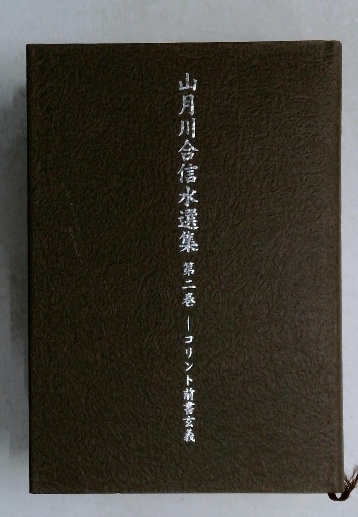 山月川合信水選集 第二巻 ―コリント前書玄義